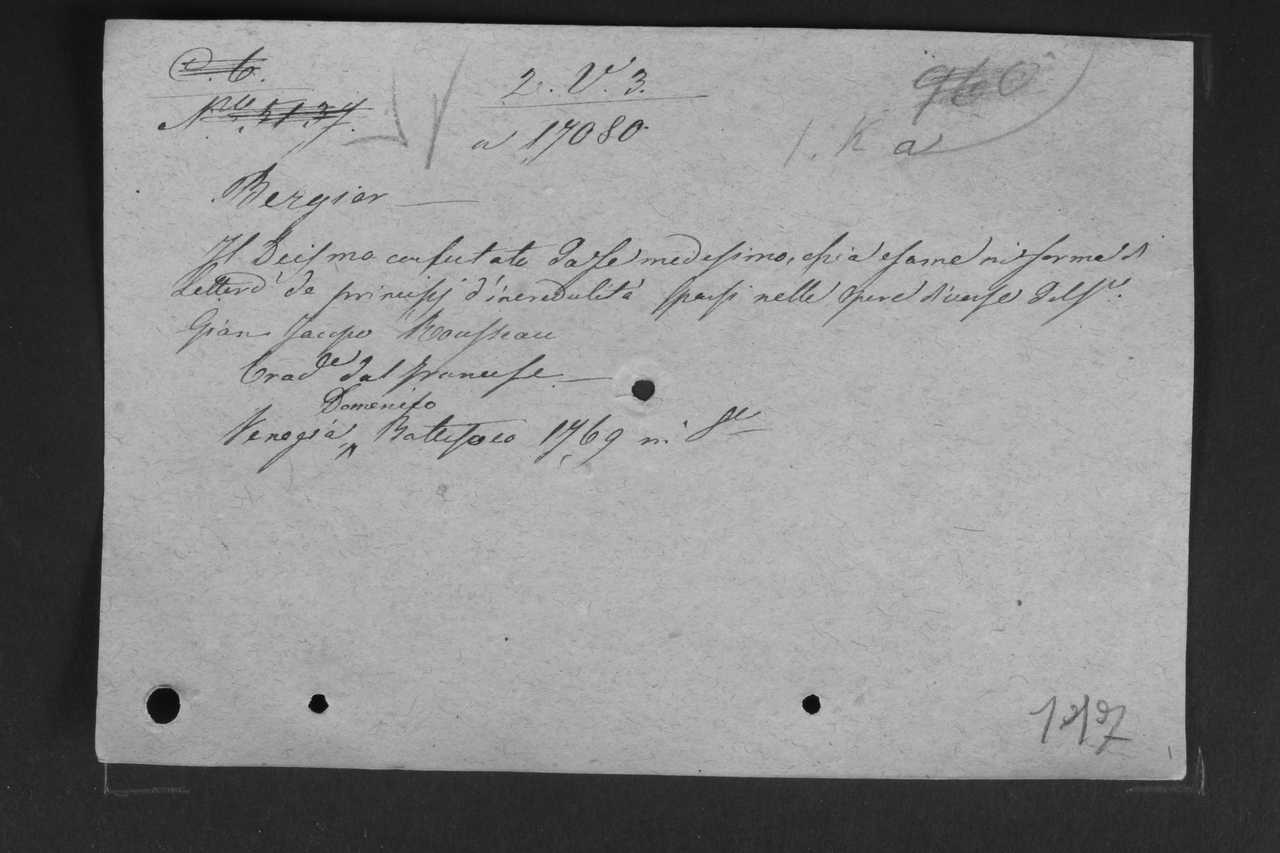 C. 6.
N.ro 5137.
2. V. 3.
a 17080.
960
1. K a
Bergier —
Il Deismo confutato da se medesimo, ossia esame in forma di
Lettere de principj d'incredulità sparsi nelle opere diverse del Sr.
Gian Jacopo Rousseau
Trad.e dal francese —
Domenico
Venezia ^ 1769 in